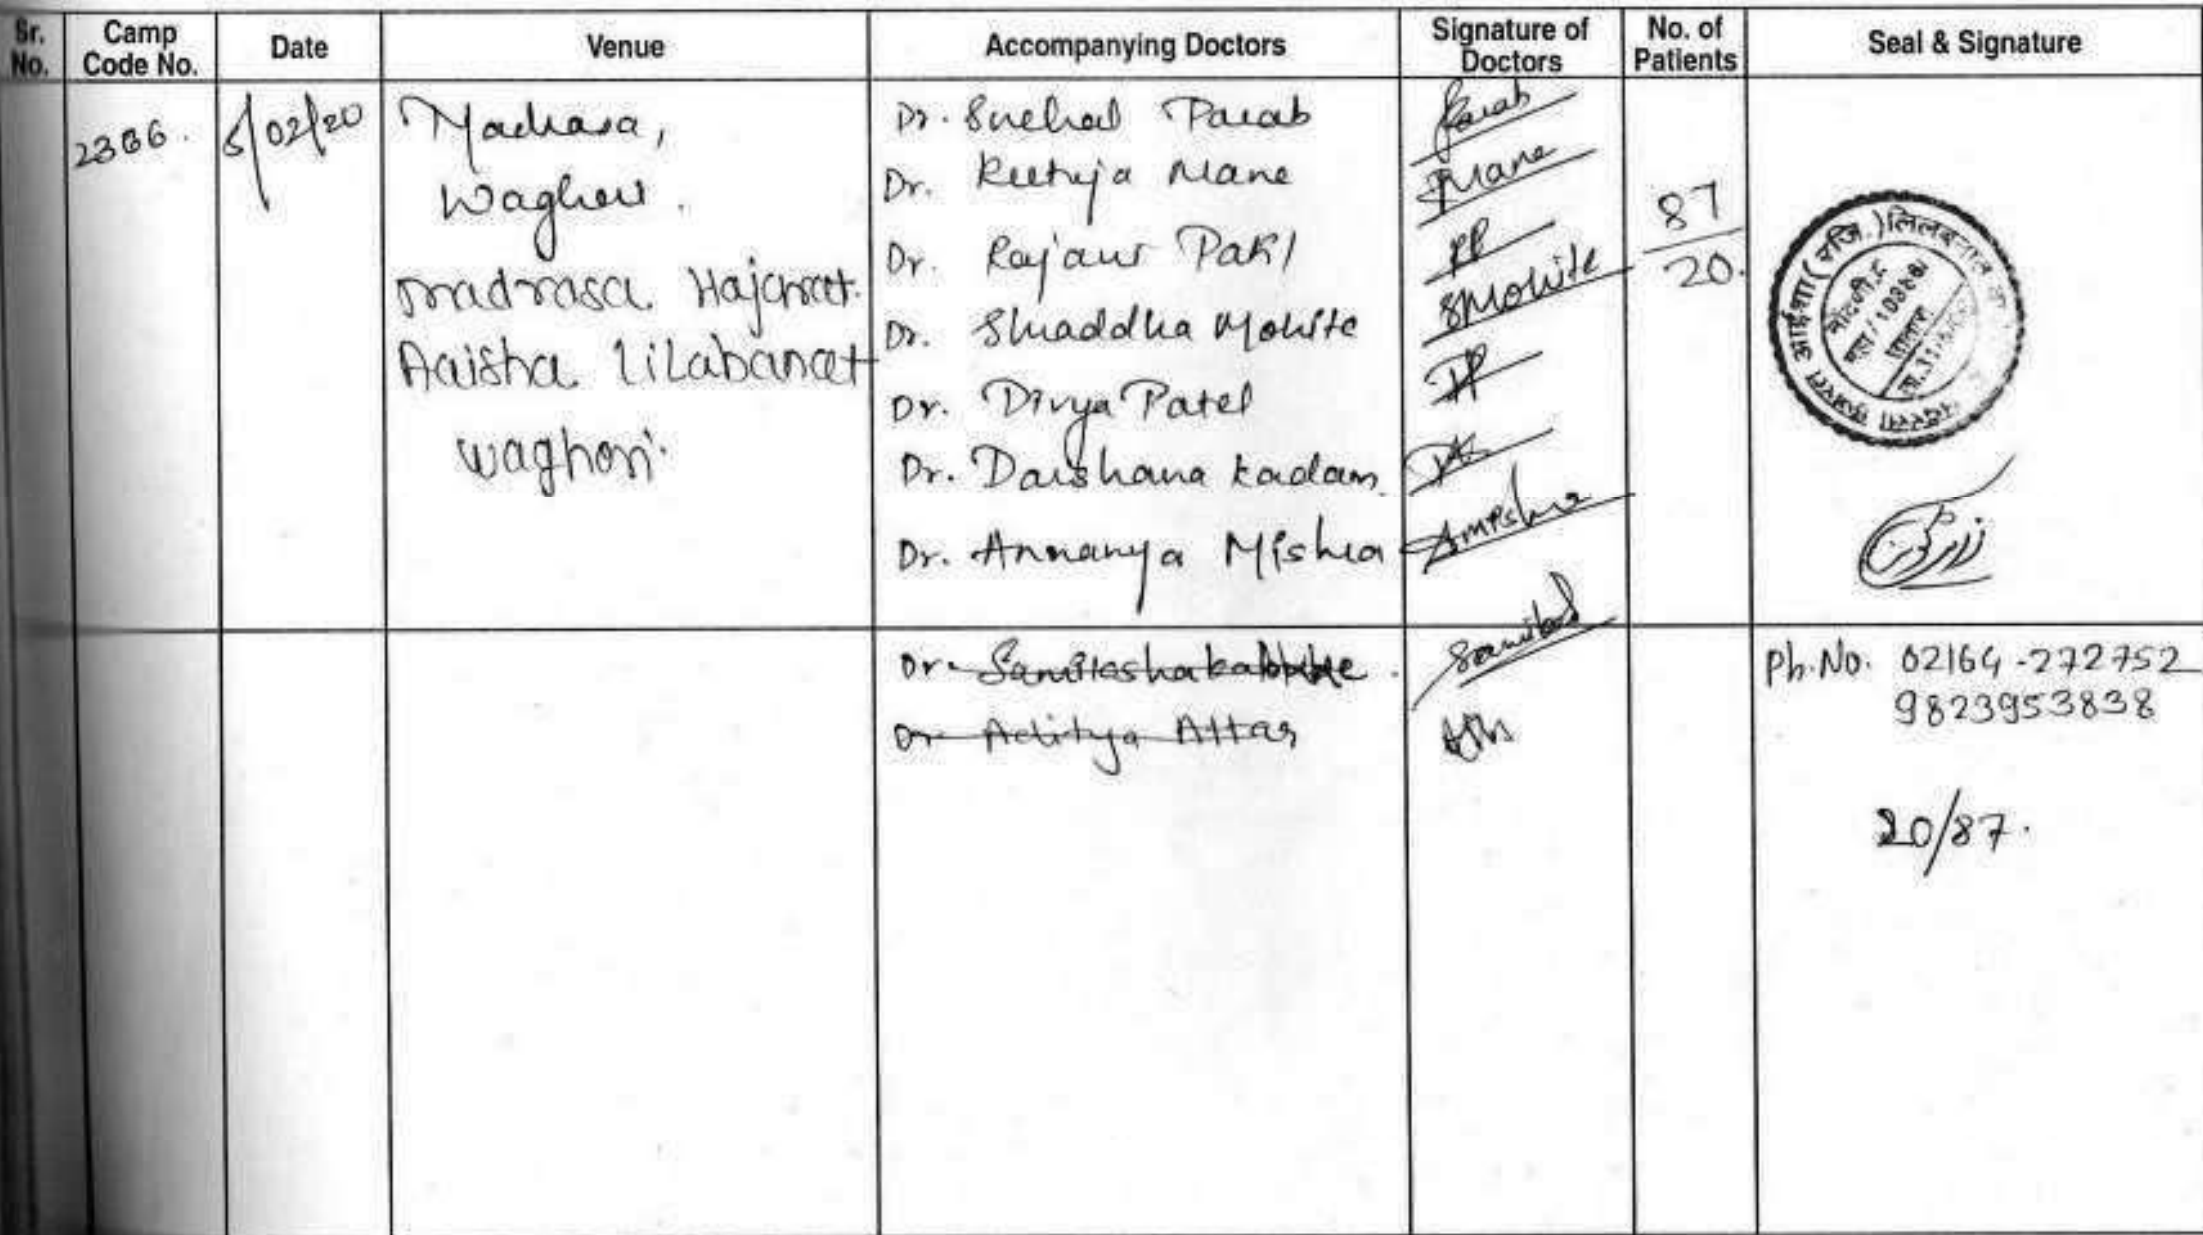 Sr. No.
Camp Code No.
Date
Venue
Accompanying Doctors
Signature of Doctors
No. of Patients
Seal & Signature
2366.
5/02/20
Madrasa,
Waghori.
madrasa Hajarat
Aaisha Lilabanat
waghori.
Dr. Snehal Parab
Dr. Rutuja Mane
Dr.
Dr. Shraddha Mohite
Dr. Divya Patel
Dr. Darshana Kadam
Dr. Annanya Mishra
Parab
Mane
PP
SMohite
Amishra
87
20.
(रजि.) लिलबनात
मदरसा हजरत आईशा
Dr. Samiksha
Dr Aditya Attar
Ph.No. 02164-272752
9823953838
20/87.